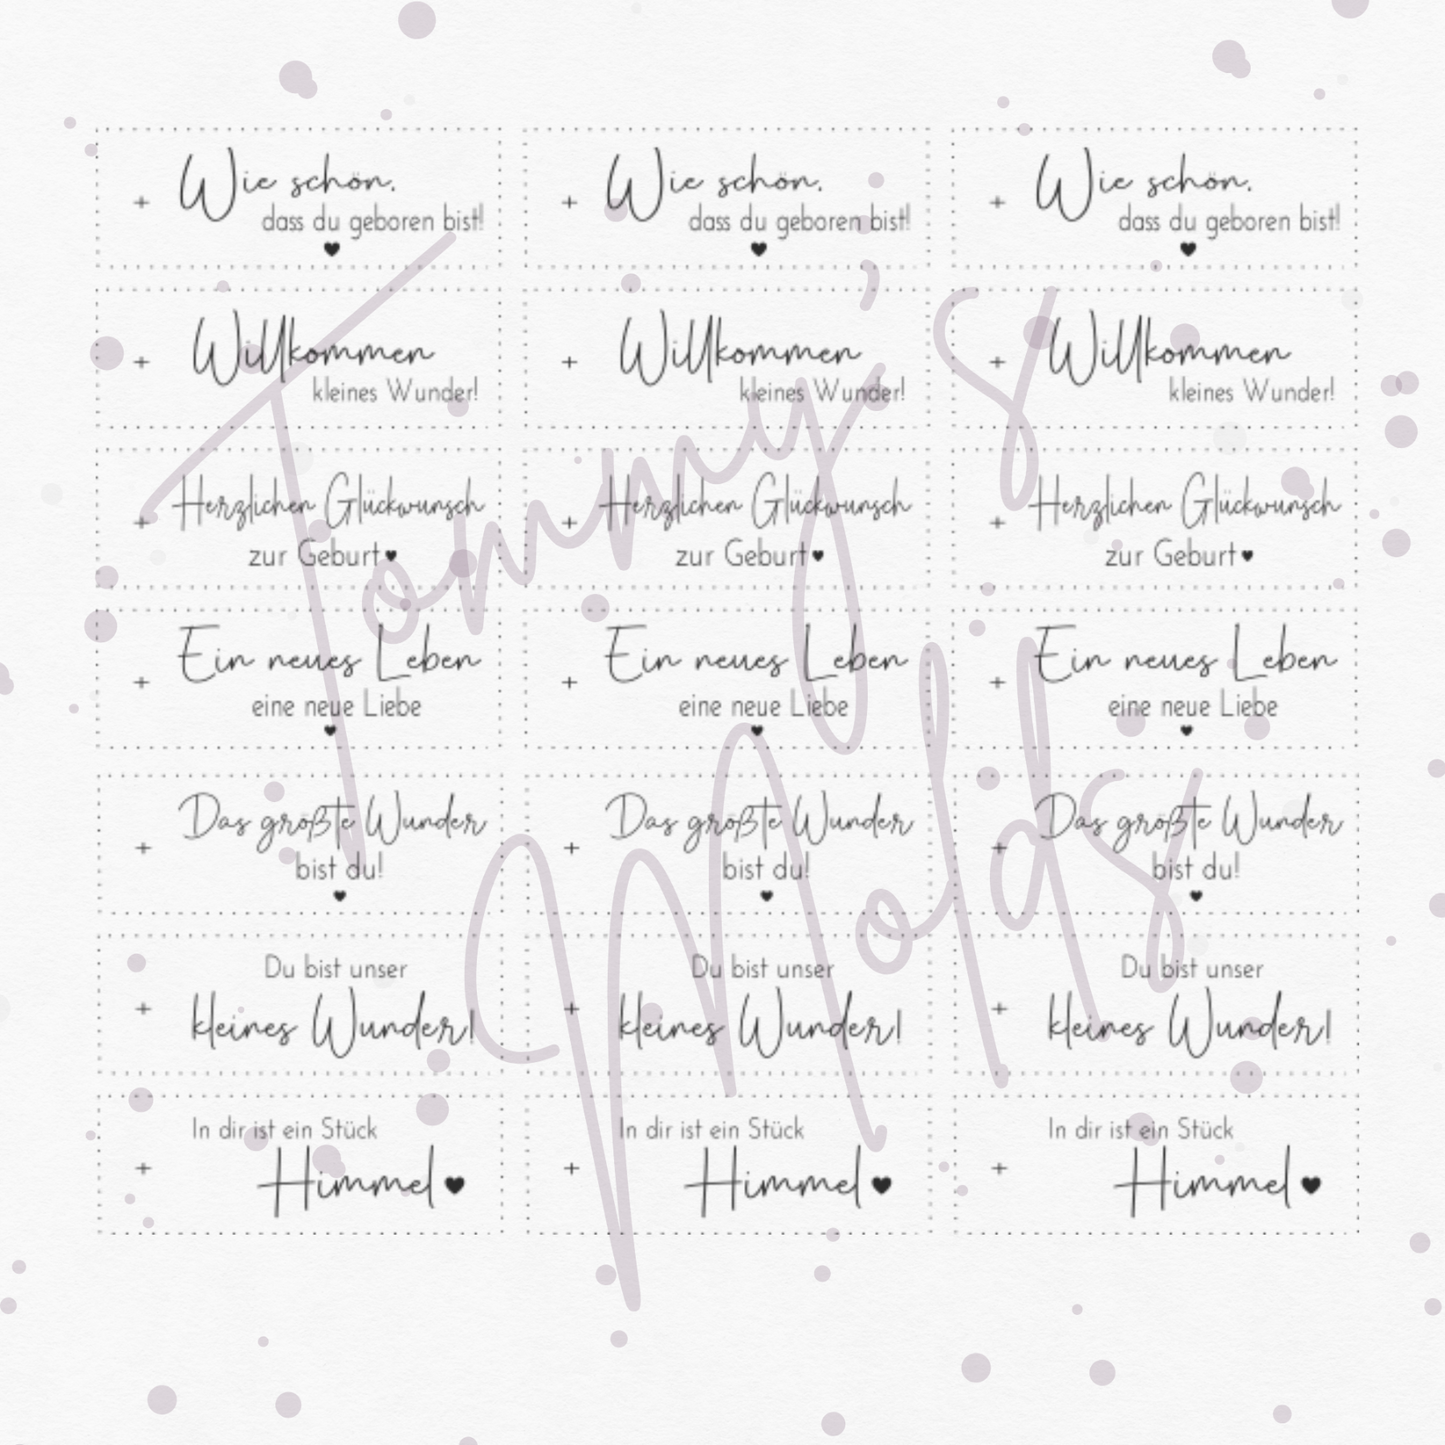 Wie schön,
dass du geboren bist!
Wie schön,
dass du geboren bist!
Wie schön,
dass du geboren bist!
Willkommen
kleines Wunder!
Willkommen
kleines Wunder!
Willkommen
kleines Wunder!
Herzlichen Glückwunsch
zur Geburt
Herzlichen Glückwunsch
zur Geburt
Herzlichen Glückwunsch
zur Geburt
Ein neues Leben
eine neue Liebe
Ein neues Leben
eine neue Liebe
Ein neues Leben
eine neue Liebe
Das größte Wunder
bist du!
Das größte Wunder
bist du!
Das größte Wunder
bist du!
Du bist unser
kleines Wunder!
Du bist unser
kleines Wunder!
Du bist unser
kleines Wunder!
In dir ist ein Stück
Himmel
In dir ist ein Stück
Himmel
In dir ist ein Stück
Himmel
Tommy's
Molds